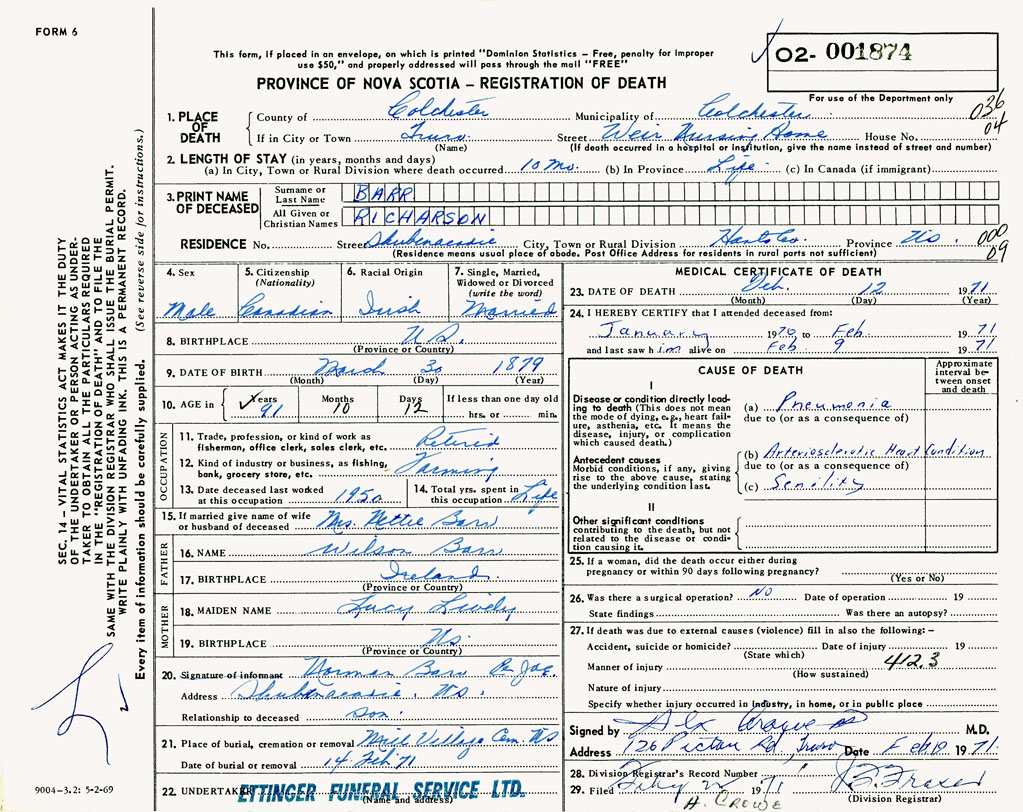 FORM 6
This form, if placed in an envelope, on which is printed "Dominion Statistics – Free, penalty for improper
use $50," and properly addressed will pass through the mail "FREE"
O2- 001874
PROVINCE OF NOVA SCOTIA – REGISTRATION OF DEATH
For use of the Department only
036
04
1. PLACE OF DEATH
County of Colchester Municipality of Colchester
If in City or Town Truro Street Weir Nursing Home House No.
(Name) (If death occurred in a hospital or institution, give the name instead of street and number)
2. LENGTH OF STAY (in years, months and days)
(a) In City, Town or Rural Division where death occurred 10 Mo. (b) In Province Life (c) In Canada (if immigrant)
3. PRINT NAME OF DECEASED
Surname or Last Name BARR
All Given or Christian Names RICHARSON
RESIDENCE No. Street Shubenacadie City, Town or Rural Division Hants Co. Province NS. 000
09
(Residence means usual place of abode. Post Office Address for residents in rural parts not sufficient)
4. Sex
Male
5. Citizenship
(Nationality)
Canadian
6. Racial Origin
Irish
7. Single, Married,
Widowed or Divorced
(write the word)
Married
8. BIRTHPLACE NS.
(Province or Country)
9. DATE OF BIRTH March 30 1879
(Month) (Day) (Year)
10. AGE in Years 91 Months 10 Days 12 If less than one day old
hrs. or min.
OCCUPATION
11. Trade, profession, or kind of work as
fisherman, office clerk, sales clerk, etc. Retired
12. Kind of industry or business, as fishing,
bank, grocery store, etc. Farming
13. Date deceased last worked
at this occupation 1950
14. Total yrs. spent in
this occupation Life
15. If married give name of wife
or husband of deceased Mrs. Nettie Barr
FATHER
16. NAME Wilson Barr
17. BIRTHPLACE Ireland
(Province or Country)
MOTHER
18. MAIDEN NAME Lucy Lively
19. BIRTHPLACE NS.
(Province or Country)
20. Signature of informant Norman Barr
Address Shubenacadie, NS.
Relationship to deceased Son.
21. Place of burial, cremation or removal Mill Village Cem. NS
Date of burial or removal 14 Feb 71
22. UNDERTAKER ETTINGER FUNERAL SERVICE LTD.
(Name and address)
MEDICAL CERTIFICATE OF DEATH
23. DATE OF DEATH Feb. 12 1971
(Month) (Day) (Year)
24. I HEREBY CERTIFY that I attended deceased from:
January 1970 to Feb. 1971
and last saw him alive on Feb 9 1971
CAUSE OF DEATH
Approximate
interval be-
tween onset
and death
I
Disease or condition directly lead-
ing to death (This does not mean
the mode of dying, e.g., heart fail-
ure, asthenia, etc. It means the
disease, injury, or complication
which caused death.)
(a) Pneumonia
due to (or as a consequence of)
Antecedent causes
Morbid conditions, if any, giving
rise to the above cause, stating
the underlying condition last.
(b) Arteriosclerotic Heart Condition
due to (or as a consequence of)
(c) Senility
II
Other significant conditions
contributing to the death, but not
related to the disease or condi-
tion causing it.
25. If a woman, did the death occur either during
pregnancy or within 90 days following pregnancy?
(Yes or No)
26. Was there a surgical operation? NO Date of operation 19
State findings Was there an autopsy?
27. If death was due to external causes (violence) fill in also the following: –
Accident, suicide or homicide? Date of injury 19
(State which)
412.3
Manner of injury
(How sustained)
Nature of injury
Specify whether injury occurred in industry, in home, or in public place
Signed by M.D.
Address 126 Pictou Rd, Truro Date Feb 1971
28. Division Registrar's Record Number
29. Filed 1971
(Division Registrar)
H. CROWE
SEC. 14 – VITAL STATISTICS ACT MAKES IT THE DUTY
OF THE UNDERTAKER OR PERSON ACTING AS UNDER-
TAKER TO OBTAIN ALL THE PARTICULARS REQUIRED
IN THE "REGISTRATION OF DEATH" AND TO FILE THE
SAME WITH THE DIVISION REGISTRAR WHO SHALL ISSUE THE BURIAL PERMIT.
WRITE PLAINLY WITH UNFADING INK. THIS IS A PERMANENT RECORD.
Every item of information should be carefully supplied. (See reverse side for instructions.)
9004-3.2: 5-2-69